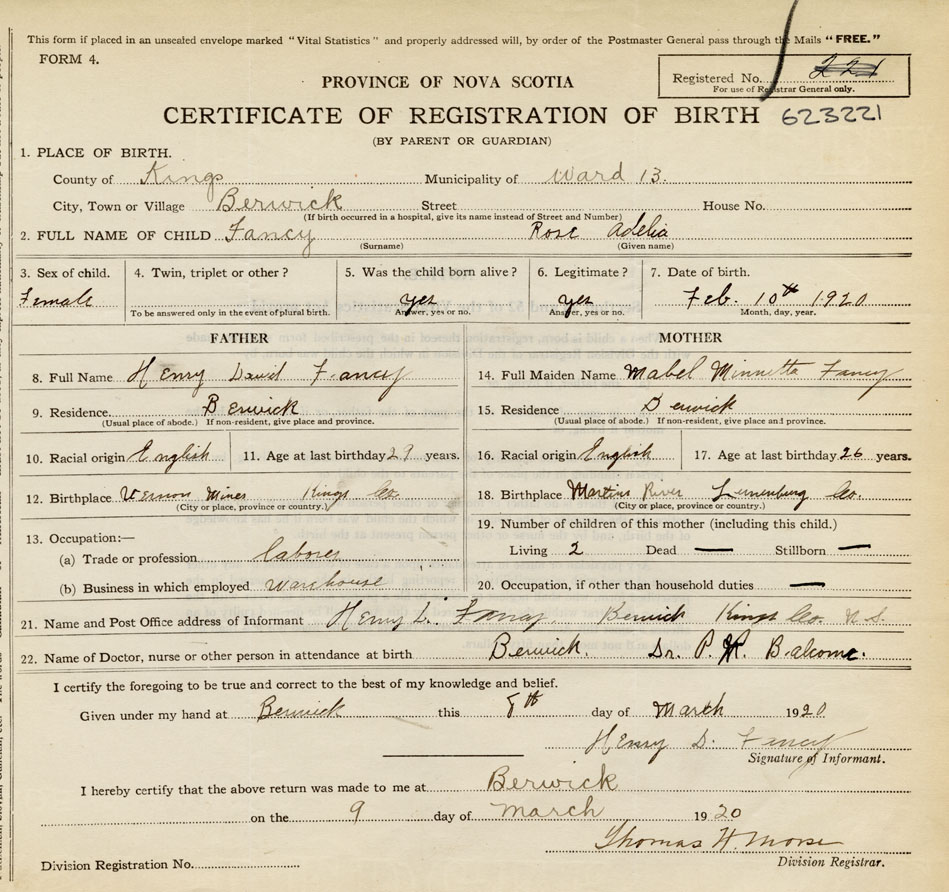 This form if placed in an unsealed envelope marked "Vital Statistics" and properly addressed will, by order of the Postmaster General pass through the Mails "FREE."
FORM 4.
Registered No. 221
For use of Registrar General only.
PROVINCE OF NOVA SCOTIA
CERTIFICATE OF REGISTRATION OF BIRTH 623221
(BY PARENT OR GUARDIAN)
1. PLACE OF BIRTH.
County of Kings Municipality of Ward 13.
City, Town or Village Berwick Street House No.
(If birth occurred in a hospital, give its name instead of Street and Number)
2. FULL NAME OF CHILD Fancy Rose Adelia
(Surname) (Given name)
3. Sex of child. 4. Twin, triplet or other? 5. Was the child born alive? 6. Legitimate? 7. Date of birth.
Female yes yes Feb. 10th 1920
To be answered only in the event of plural birth. Answer, yes or no. Answer, yes or no. Month, day, year.
FATHER MOTHER
8. Full Name Henry David Fancy 14. Full Maiden Name Mabel Minnetta Fancy
9. Residence Berwick 15. Residence Berwick
(Usual place of abode.) If non-resident, give place and province. (Usual place of abode.) If non-resident, give place and province.
10. Racial origin English 11. Age at last birthday 29 years. 16. Racial origin English 17. Age at last birthday 26 years.
12. Birthplace Vernon Mines Kings Co. 18. Birthplace Martins River Lunenburg Co.
(City or place, province or country.) (City or place, province or country.)
13. Occupation:— 19. Number of children of this mother (including this child.)
(a) Trade or profession laborer Living 2 Dead — Stillborn —
(b) Business in which employed Warehouse 20. Occupation, if other than household duties —
21. Name and Post Office address of Informant Henry D. Fancy. Berwick Kings Co. N.S.
22. Name of Doctor, nurse or other person in attendance at birth Berwick. Dr. P. Balcome.
I certify the foregoing to be true and correct to the best of my knowledge and belief.
Given under my hand at Berwick this 8th day of March 1920
Henry D. Fancy
Signature of Informant.
I hereby certify that the above return was made to me at Berwick
on the 9 day of March 1920
Thomas H Morse
Division Registrar.
Division Registration No.